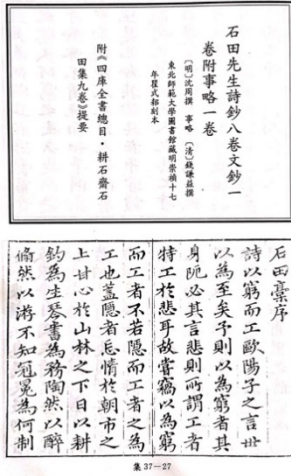 石田先生詩鈔八卷文鈔一
卷附事略一卷
〔明〕沈周撰 事略 〔清〕錢謙益撰
東北師範大學圖書館藏明崇禎十七
年瞿式耜刻本
附《四庫全書總目·耕石齋石
田集九卷》提要
石田藁序
詩以窮而工歐陽子之言世
以為至矣予則以為窮者其
身阨必其言悲則所謂工者
特工於悲耳故嘗竊以為窮
而工者不若隱而工者之為
工也蓋隱者忘情於朝市之
上甘心於山林之下日以耕
釣為生琴書為務陶然以醉
翛然以游不知冠冕為何制
集37-27